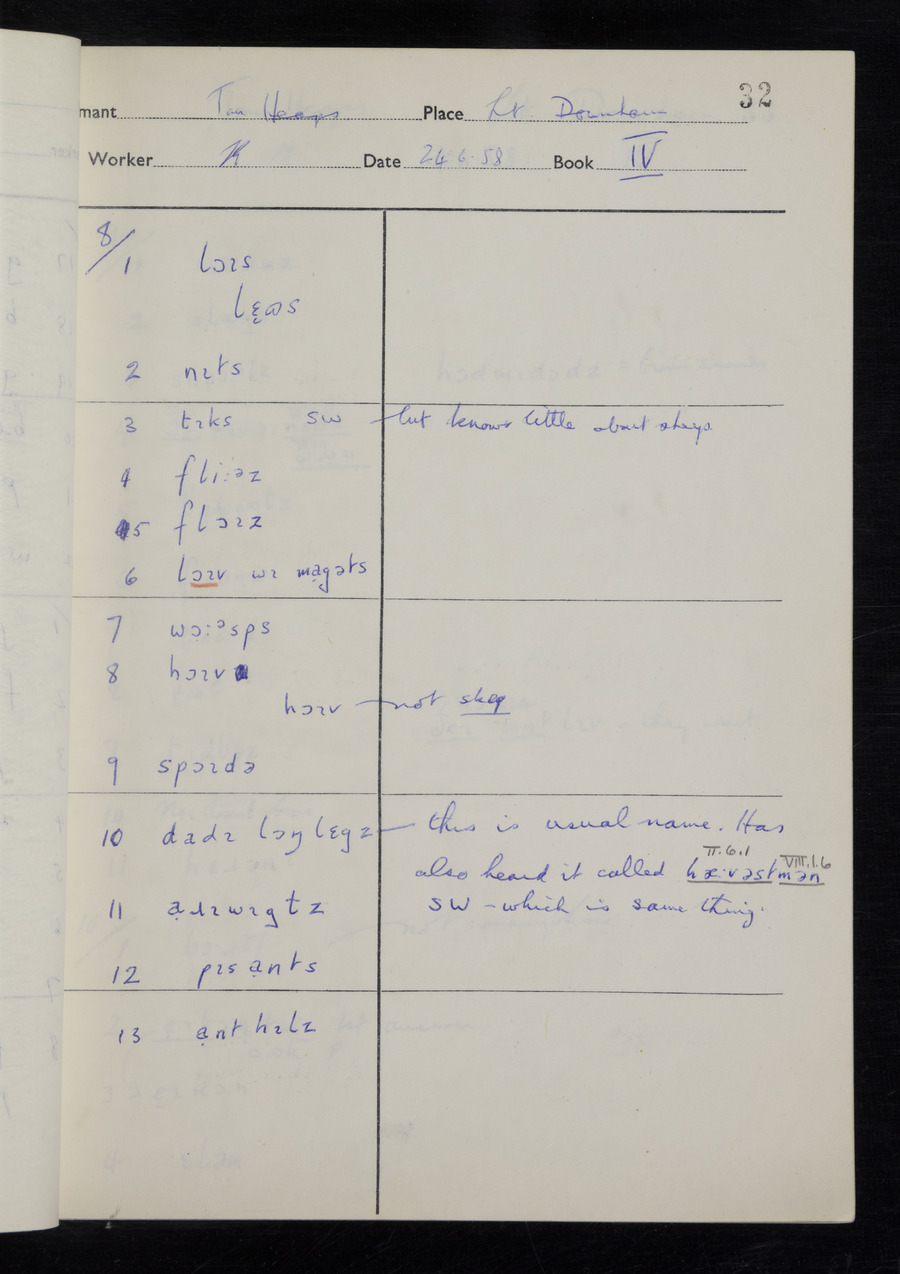 32
mant Tom Heaps Place Lt. Downham
Worker Date 24.6.58 Book IV
8/
1 lɔɪs
lɛ̨ɷs
2 nɪts
3 tɪks SW – but knows little about sheep
4 fli:əz
5 flɔɪz
6 lɔɪv wɪ mạgəts
7 wɔ̣:əsps
8 hɔɪv
hɔɪv – not skep
9 spɔɪdə
10 dadɪ lɔŋ lɛgz – this is usual name. Has
II.6.1 VIII.1.6
also heard it called hæ:vəstmən
11 ạɹɪwɪgtz SW – which is same thing.
12 pɪsạnts
13 ạnt hɪlz